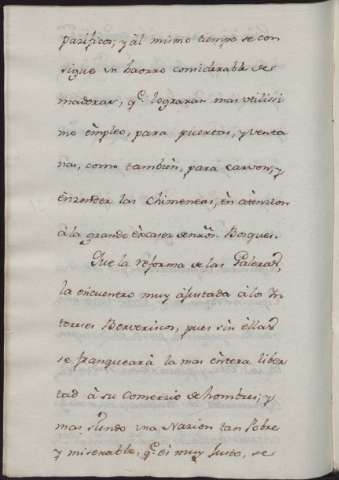 pasifico, y âl mismo tiempo se con
sigue un haorro considerable de
maderas, q.e lograràn mas utilissi
mo êmpleo, para puertas, y venta
nas, como tambièn, para carvon, y
ênzender las chimeneas, ên atension
à la grande êscases de nrôs. Bosques.
Que la reforma de las Galeras,
la encuentro muy âjustada à los In
tereses Berveriscos, pues sin êllas
se franquearà la mas êntera liber
tad à su Comersio de hombres; y
mas siendo una Nazion tan Pobre
y miserable, q.e es muy Justo, se